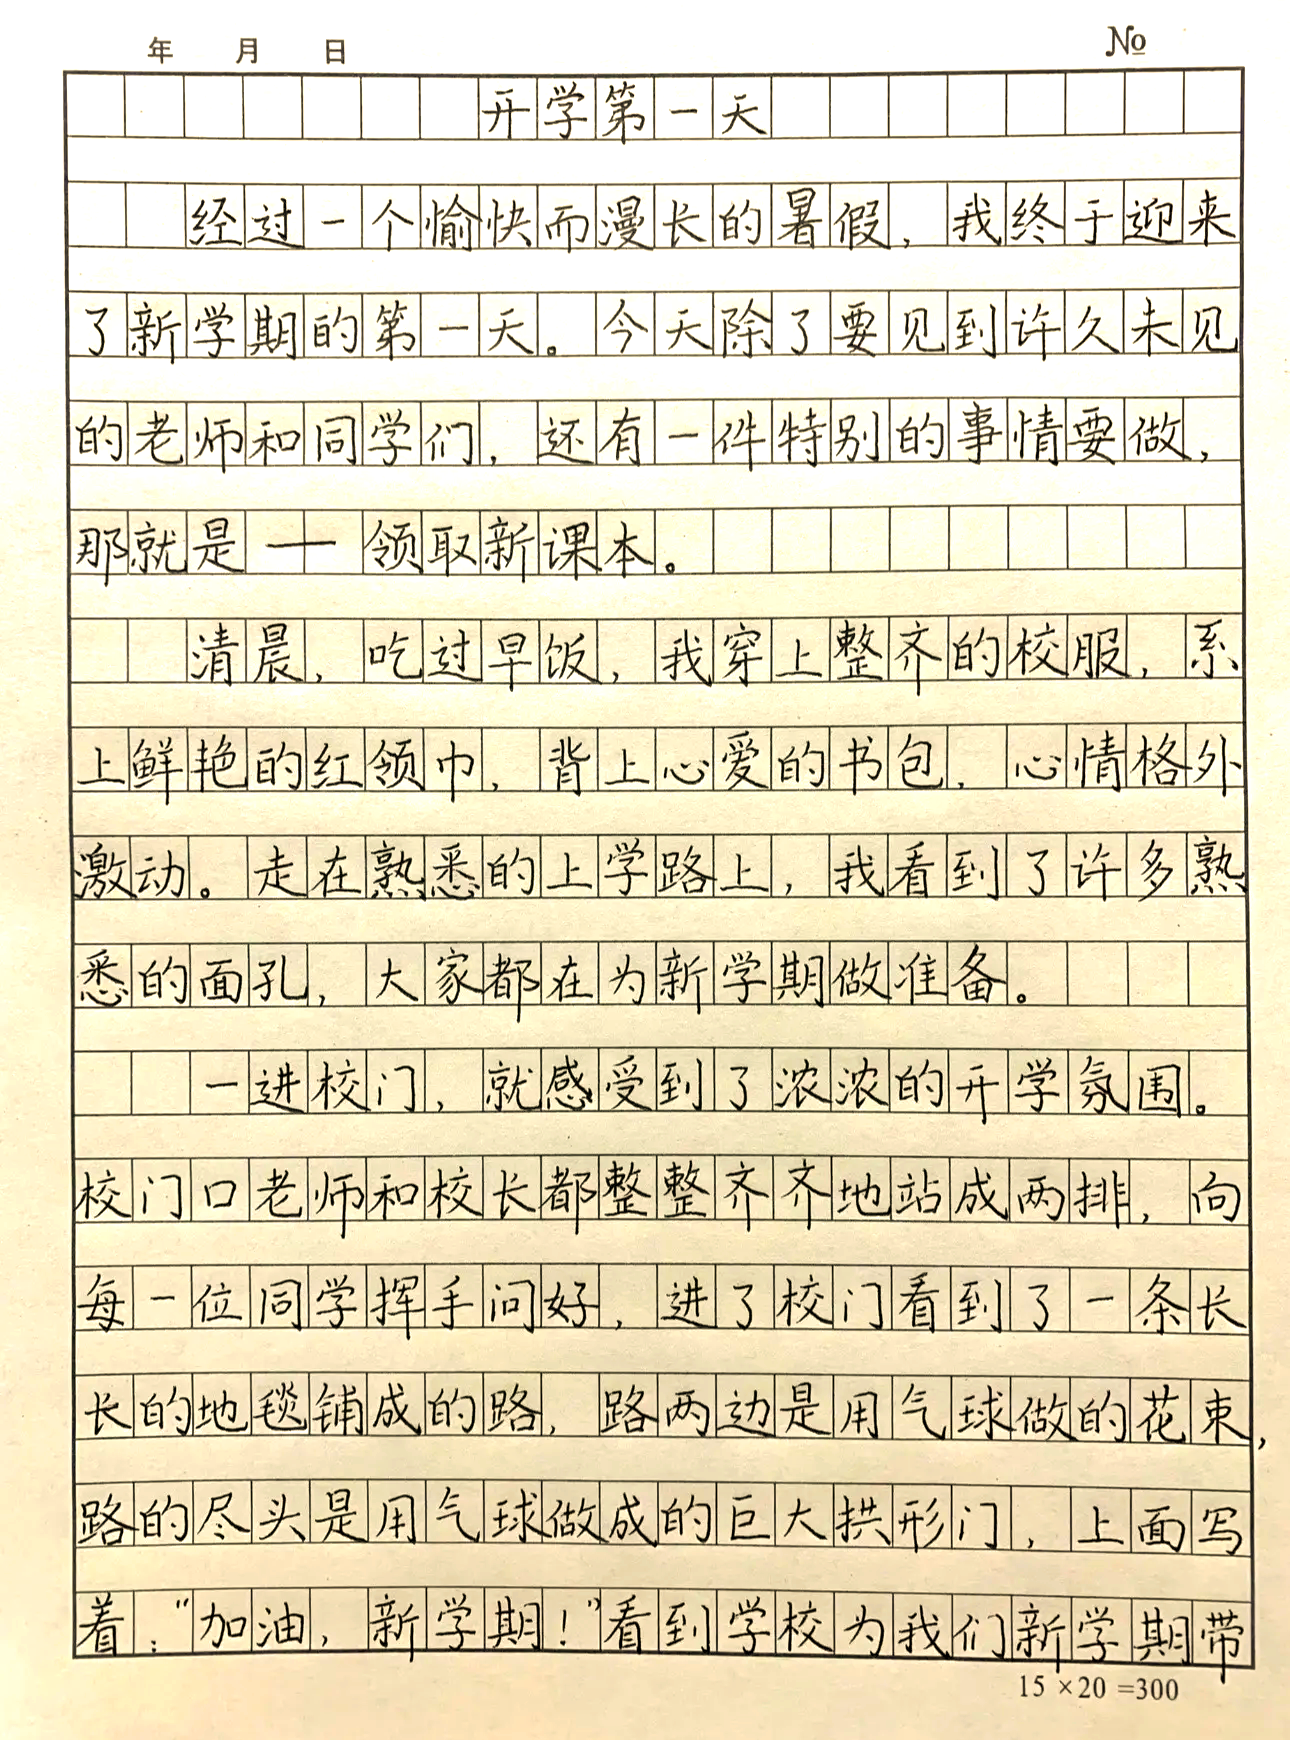 年 月 日 №
开学第一天
经过一个愉快而漫长的暑假，我终于迎来
了新学期的第一天。今天除了要见到许久未见
的老师和同学们，还有一件特别的事情要做，
那就是——领取新课本。
清晨，吃过早饭，我穿上整齐的校服，系
上鲜艳的红领巾，背上心爱的书包，心情格外
激动。走在熟悉的上学路上，我看到了许多熟
悉的面孔，大家都在为新学期做准备。
一进校门，就感受到了浓浓的开学氛围。
校门口老师和校长都整整齐齐地站成两排，向
每一位同学挥手问好，进了校门看到了一条长
长的地毯铺成的路，路两边是用气球做的花束，
路的尽头是用气球做成的巨大拱形门，上面写
着：“加油，新学期！”看到学校为我们新学期带
15×20=300